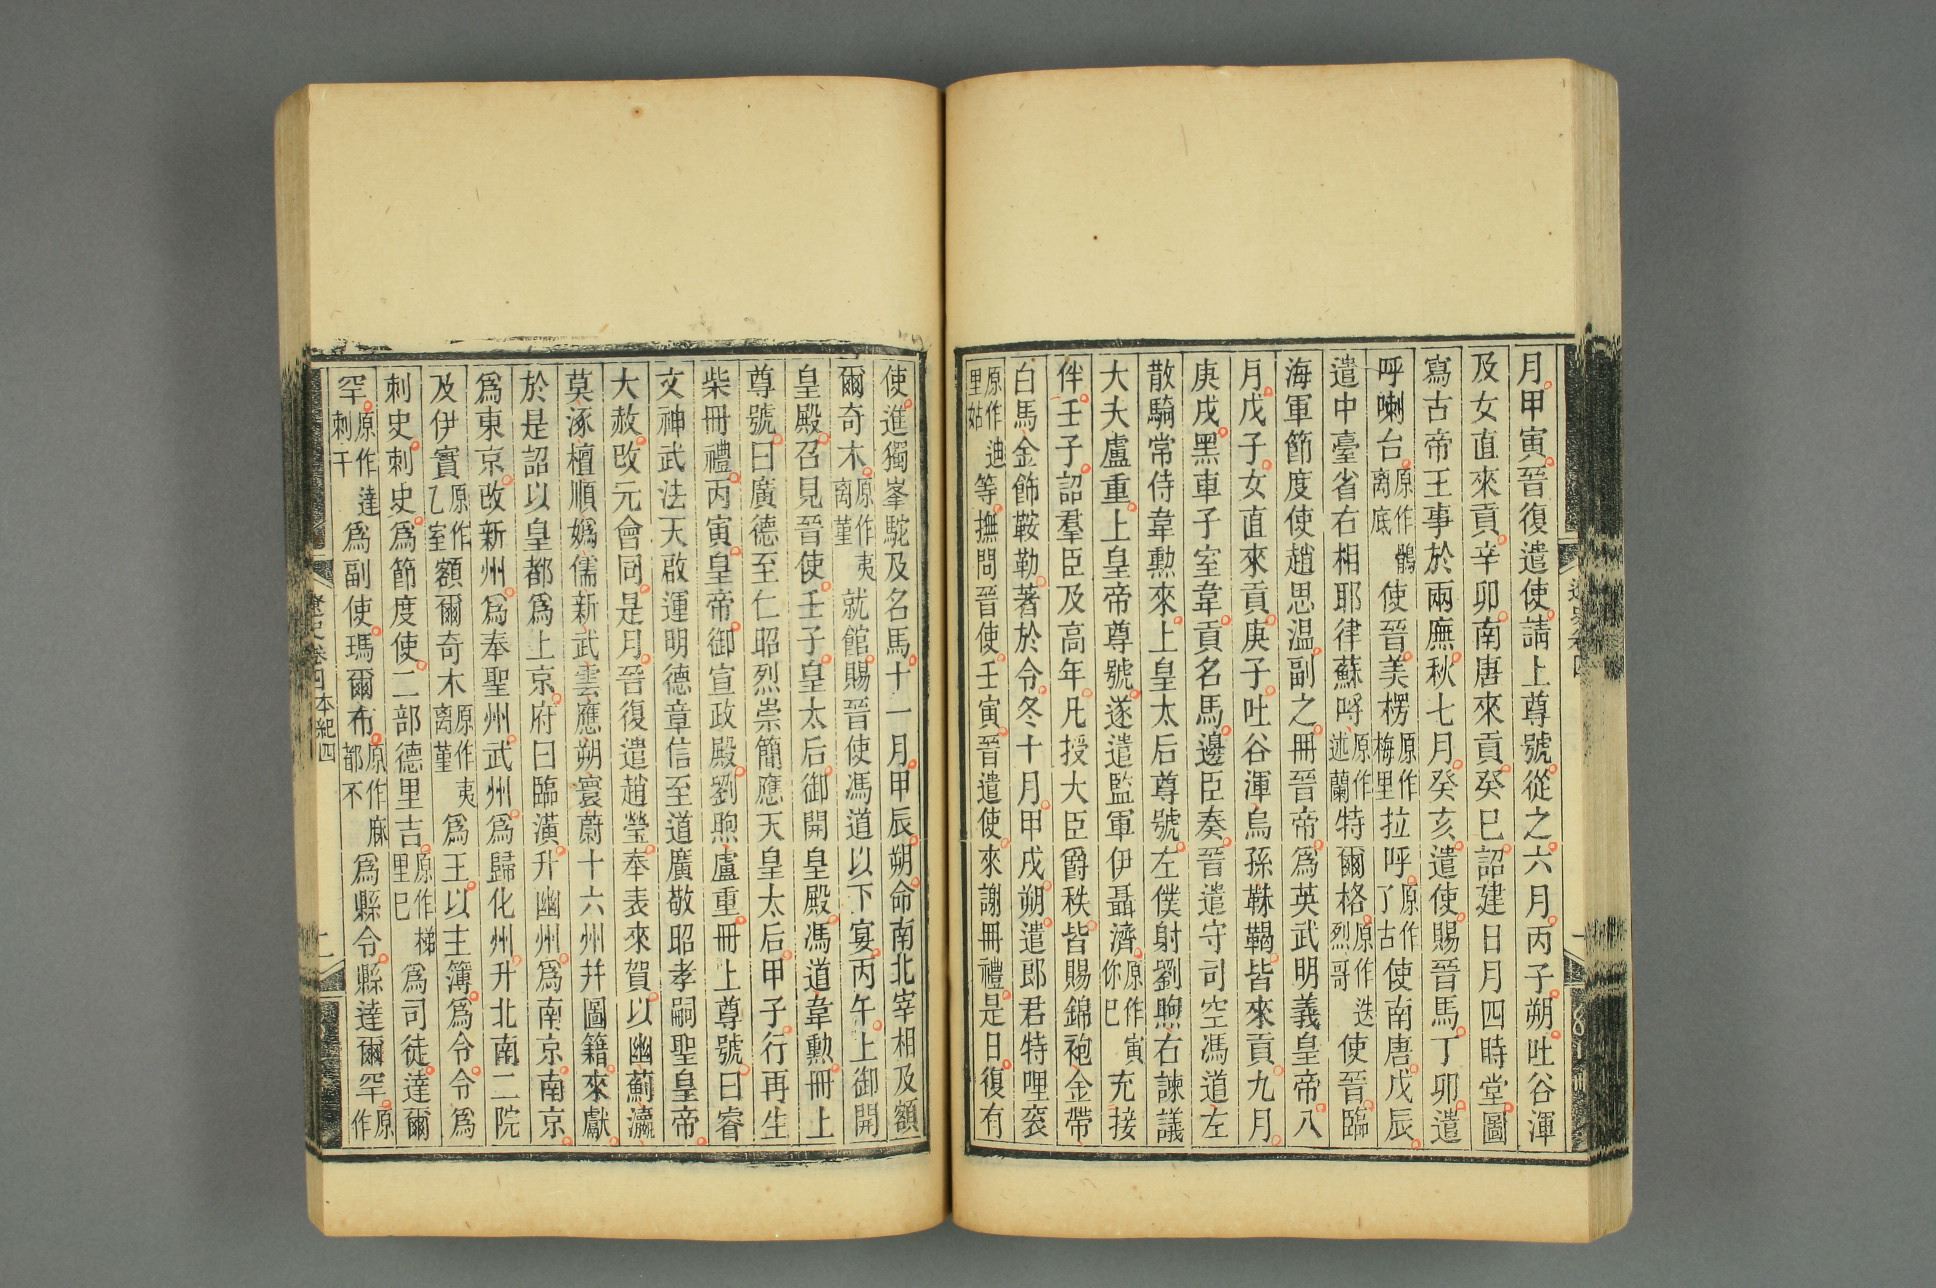 月甲寅晉復遣使請上尊號從之六月丙子朔吐谷渾
及女直來貢辛卯南唐來貢癸巳詔建日月四時堂圖
寫古帝王事於兩廡秋七月癸亥遣使賜晉馬丁卯遣
呼喇台原作鶻离底使晉美楞原作梅里拉呼原作了古使南唐戊辰
遣中臺省右相耶律蘇呼原作述蘭特爾格原作迭烈哥使晉臨
海軍節度使趙思温副之冊晉帝爲英武明義皇帝八
月戊子女直來貢庚子吐谷渾烏孫靺鞨皆來貢九月
庚戌黑車子室韋貢名馬邊臣奏晉遣守司空馮道左
散騎常侍韋勳來上皇太后尊號左僕射劉煦右諫議
大夫盧重上皇帝尊號遂遣監軍伊聶濟原作寅你巳充接
伴壬子詔羣臣及高年凡授大臣爵秩皆賜錦袍金帶
白馬金飾鞍勒著於令冬十月甲戌朔遣郎君特哩袞
原作迪里姑等撫問晉使壬寅晉遣使來謝冊禮是日復有
使進獨峯駝及名馬十一月甲辰朔命南北宰相及額
爾奇木原作夷离菫就館賜晉使馮道以下宴丙午上御開
皇殿召見晉使壬子皇太后御開皇殿馮道韋勳冊上
尊號曰廣德至仁昭烈崇簡應天皇太后甲子行再生
柴冊禮丙寅皇帝御宣政殿劉煦盧重冊上尊號曰睿
文神武法天啟運明德章信至道廣敬昭孝嗣聖皇帝
大赦改元會同是月晉復遣趙瑩奉表來賀以幽薊瀛
莫涿檀順嬀儒新武雲應朔寰蔚十六州幷圖籍來獻
於是詔以皇都爲上京府曰臨潢升幽州爲南京南京
爲東京改新州爲奉聖州武州爲歸化州升北南二院
及伊實原作乙室額爾奇木原作夷离菫爲王以主簿爲令令爲
刺史刺史爲節度使二部德里吉原作梯里巳爲司徒達爾
罕原作達刺干爲副使瑪爾布原作麻都不爲縣令縣達爾罕原作
遼史卷四 本紀四 二